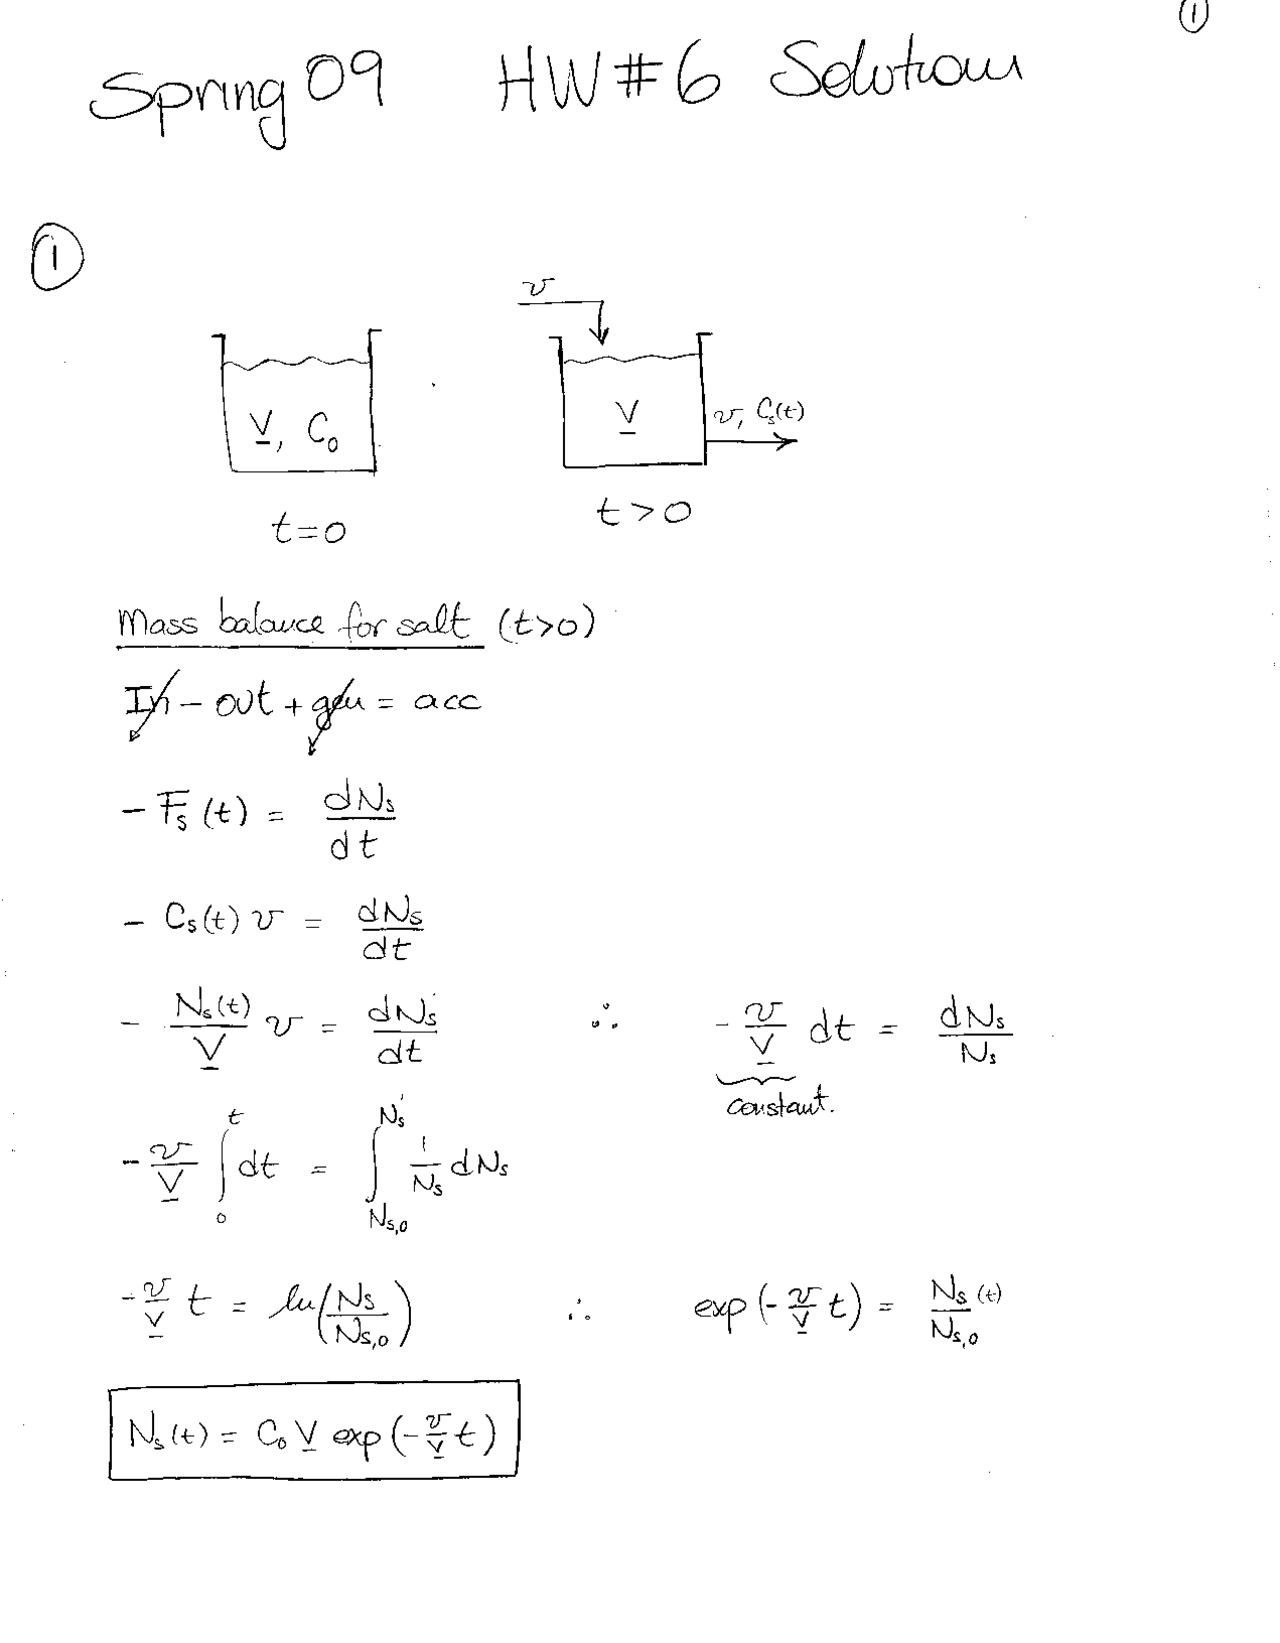 ①
Spring 09 HW#6 Solutions
①
v
V, C₀
V
v, Cₛ(t)
t=0
t>0
Mass balance for salt (t>0)
In - out + gen = acc
- Fₛ(t) = dNₛ/dt
- Cₛ(t) v = dNₛ/dt
- Nₛ(t)/V v = dNₛ/dt ∴ - v/V dt = dNₛ/Nₛ
constant.
- v/V ∫₀ᵗ dt = ∫_{Nₛ,₀}^{Nₛ} 1/Nₛ dNₛ
- v/V t = ln(Nₛ/Nₛ,₀) ∴ exp(- v/V t) = Nₛ(t)/Nₛ,₀
Nₛ(t) = C₀ V exp(- v/V t)